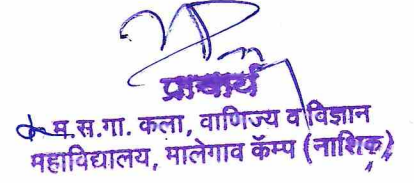 प्राचार्य
म.स.गा. कला, वाणिज्य व विज्ञान
महाविद्यालय, मालेगाव कॅम्प (नाशिक)